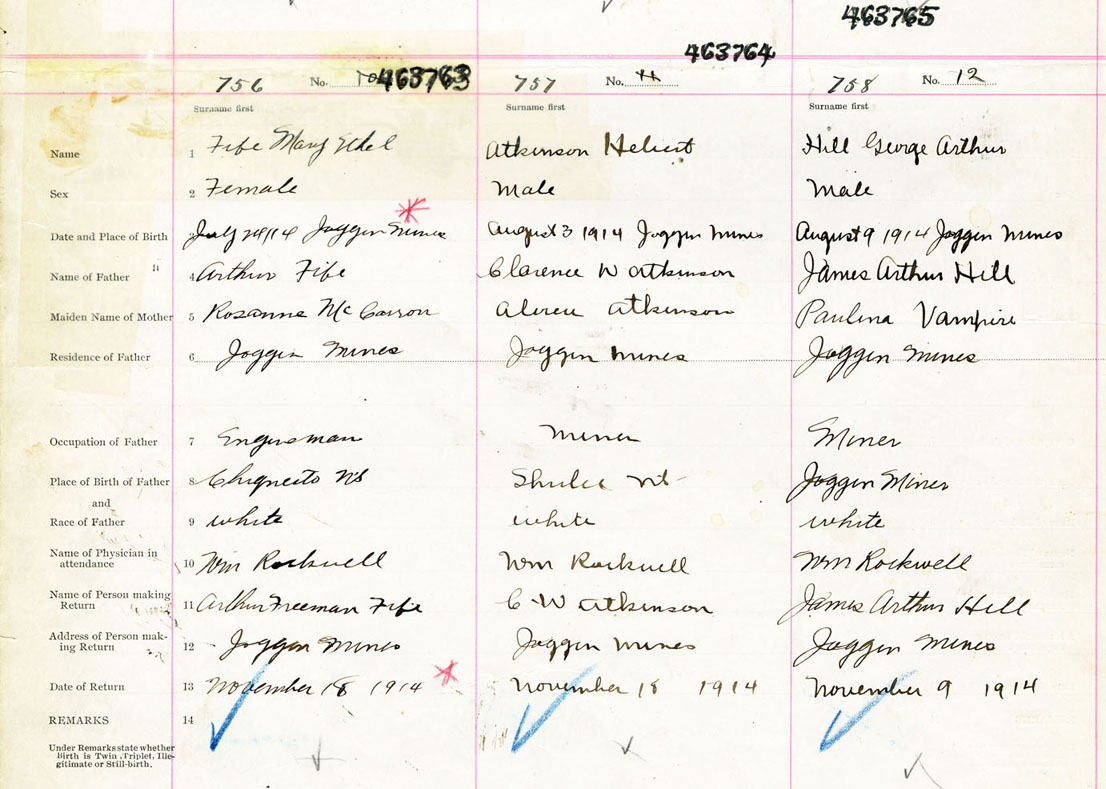 463765
463764
756 No. 10 463763 757 No. 11 758 No. 12
Surname first Surname first Surname first
Name 1 Fife Mary Ethel Atkinson Hebert Hill George Arthur
Sex 2 Female Male Male
Date and Place of Birth 3 July 28 1914 Joggin Mines August 3 1914 Joggin Mines August 9 1914 Joggin Mines
Name of Father 4 Arthur Fife Clarence W Atkinson James Arthur Hill
Maiden Name of Mother 5 Rosanne McCarron Atkinson Paulina Vampire
Residence of Father 6 Joggin Mines Joggin Mines Joggin Mines
Occupation of Father 7 Engineman Miner Miner
Place of Birth of Father 8 Chignecto NS Shulee NS Joggin Mines
and
Race of Father 9 white white white
Name of Physician in attendance 10 Wm Rockwell Wm Rockwell Wm Rockwell
Name of Person making Return 11 Arthur Freeman Fife C W Atkinson James Arthur Hill
Address of Person mak-ing Return 12 Joggin Mines Joggin Mines Joggin Mines
Date of Return 13 November 18 1914 November 18 1914 November 9 1914
REMARKS 14
Under Remarks state whether
Birth is Twin, Triplet, Ille-
gitimate or Still-birth.